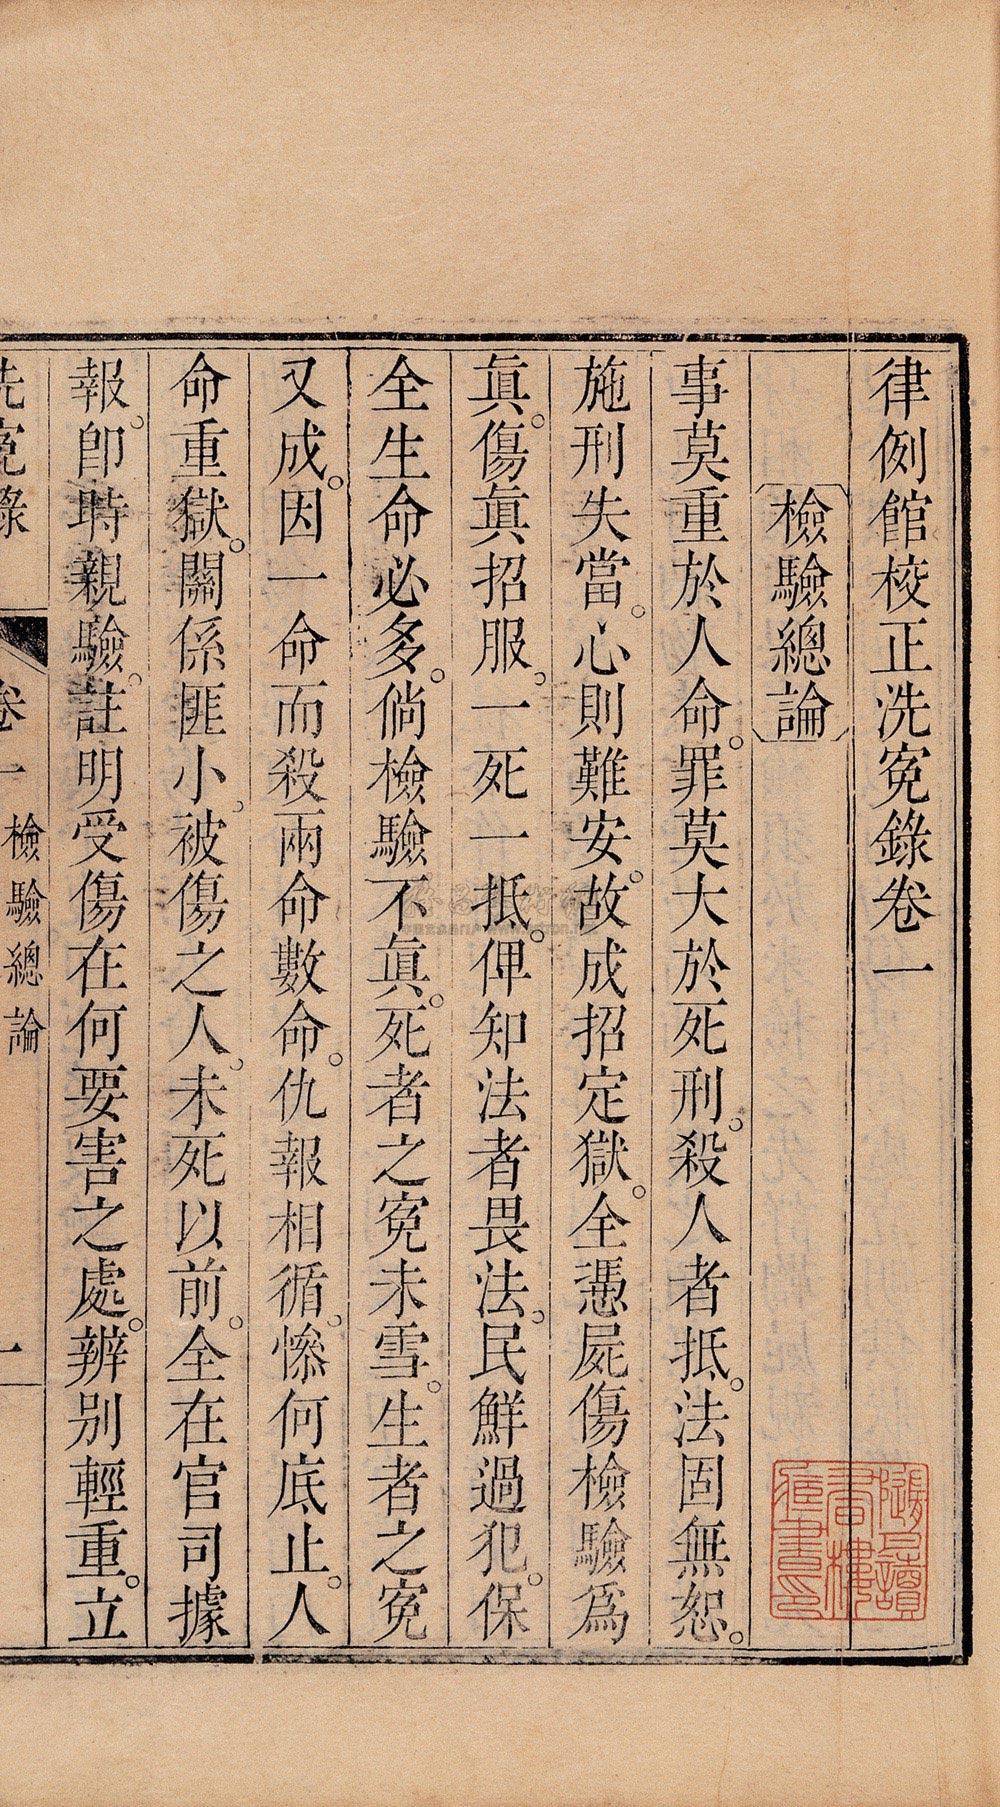 律例館校正洗冤錄卷一
檢驗總論
事莫重於人命。罪莫大於死刑。殺人者抵。法固無恕。
施刑失當。心則難安。故成招定獄。全憑屍傷檢驗爲
眞。傷眞招服。一死一抵。俾知法者畏法。民鮮過犯。保
全生命必多。倘檢驗不眞。死者之冤未雪。生者之冤
又成。因一命而殺兩命數命。仇報相循。慘何底止。人
命重獄。關係匪小。被傷之人。未死以前。全在官司據
報。卽時親驗。註明受傷在何要害之處。辨別輕重。立
洗冤錄 卷一 檢驗總論 一